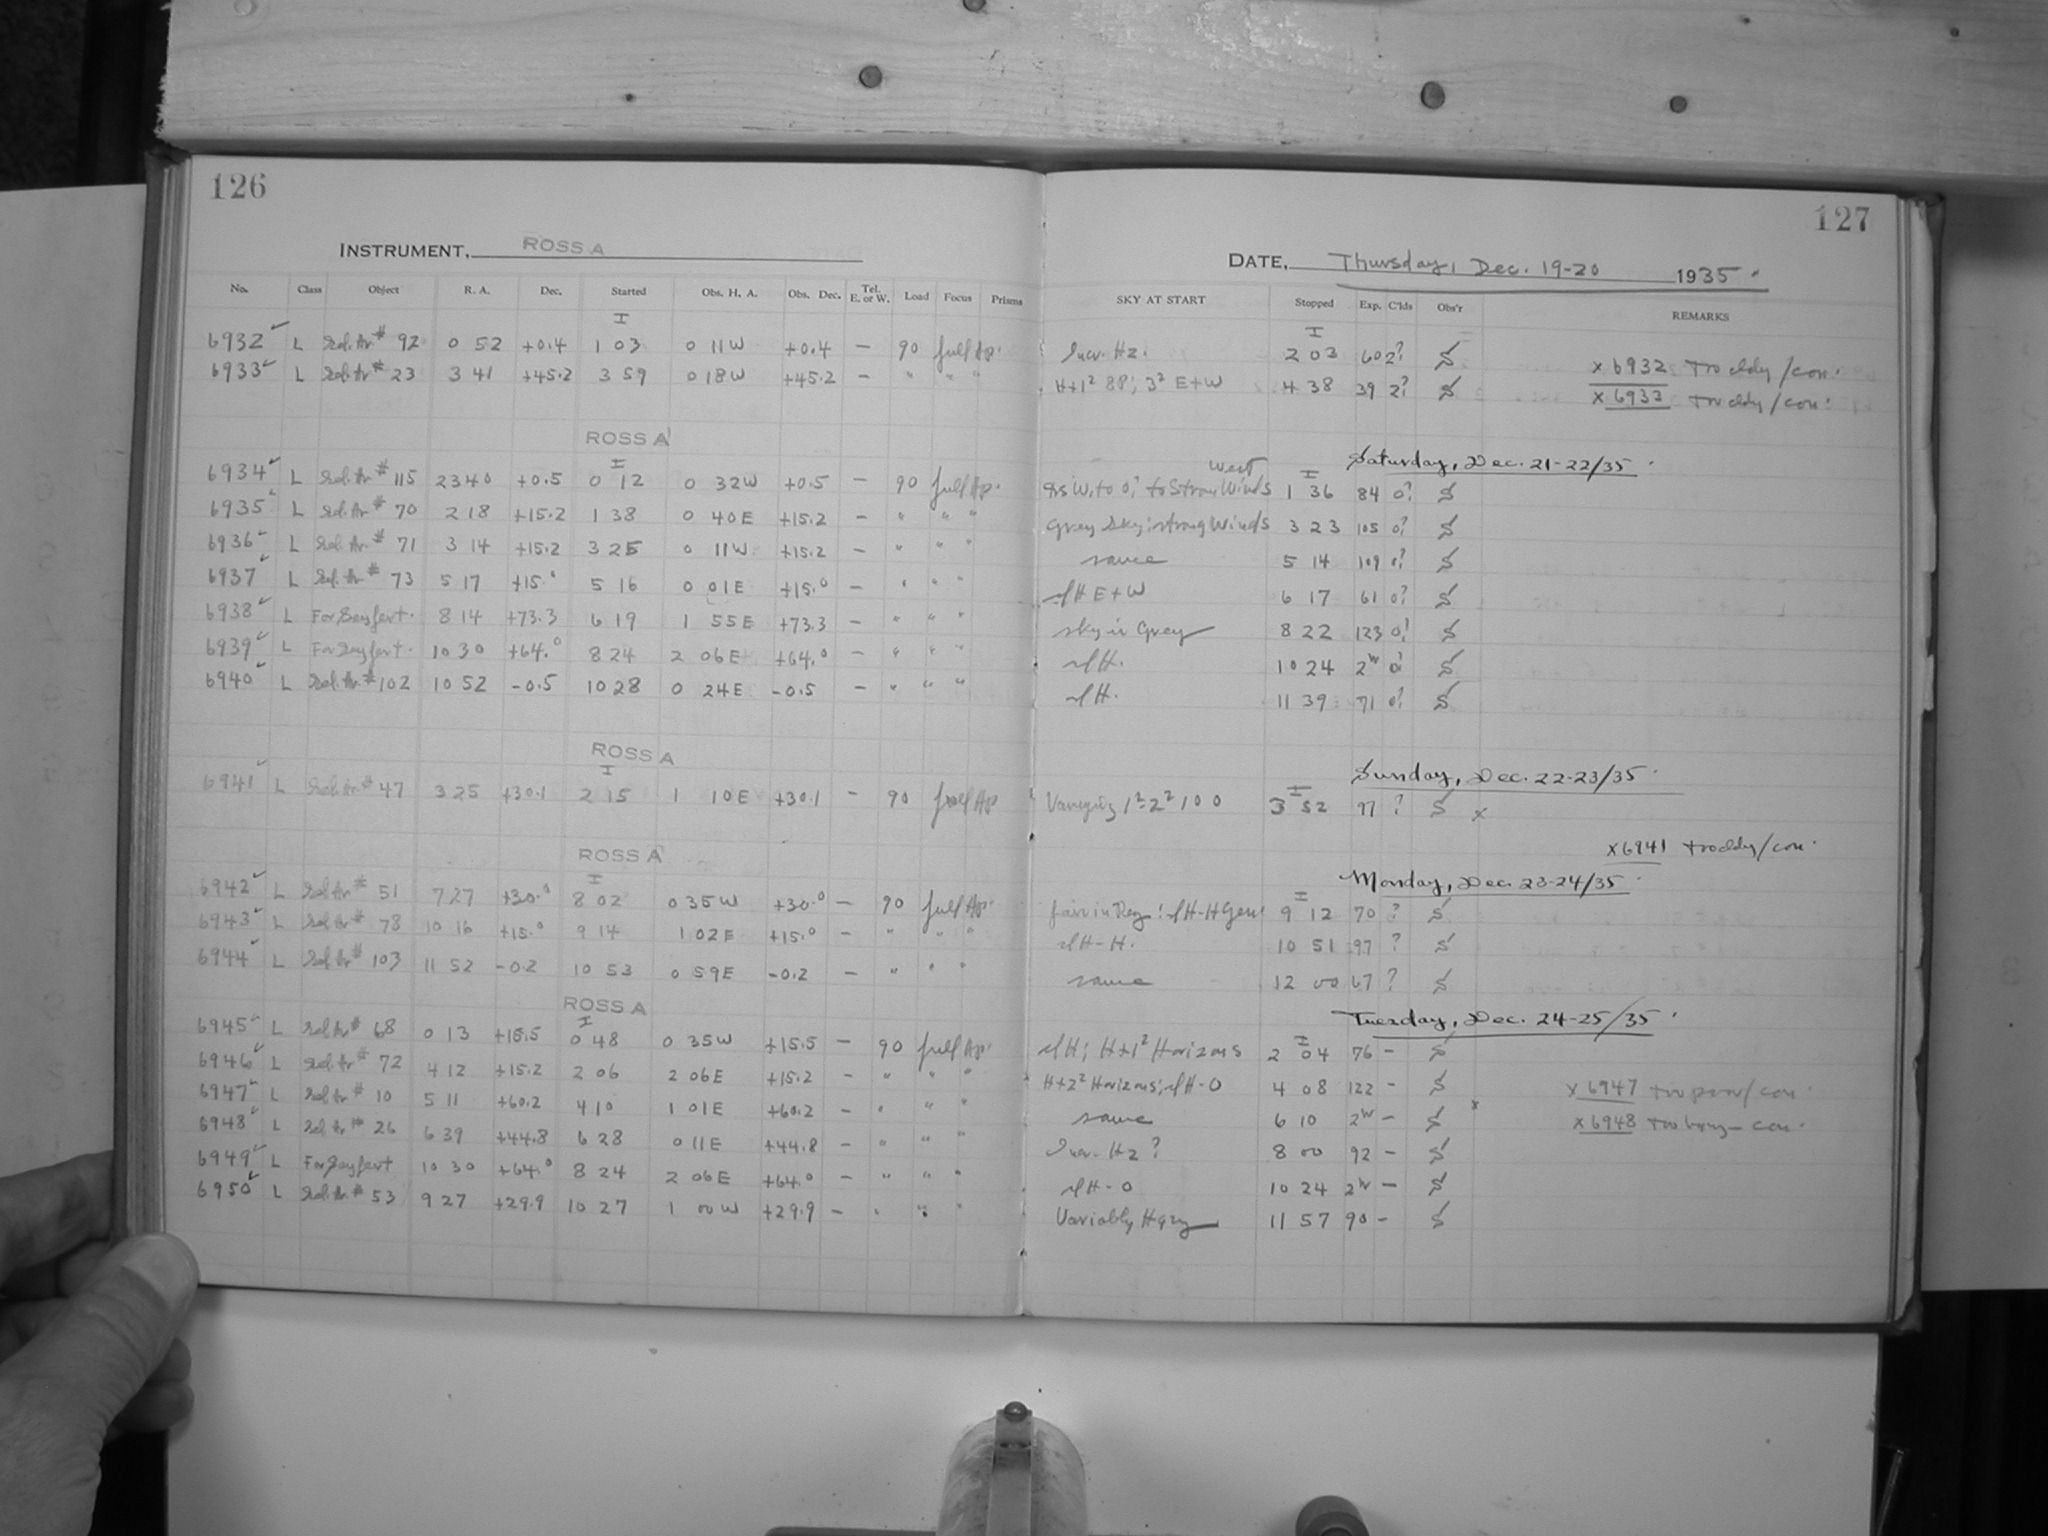 126
127
INSTRUMENT, ROSS A
DATE, Thursday, Dec. 19-20 1935.
No. Class Object R. A. Dec. Started Obs. H. A. Obs. Dec. Tel. E. or W. Load Focus Prisms SKY AT START Stopped Exp. C'lds Obs'r REMARKS
6932 L Sel. Ar # 92 0 52 +0.4 1 03 0 11W +0.4 — 90 full Ap. Incr. Hz. 2 03 60 2? S x 6932 /con.
6933 L Sel. Ar # 23 3 41 +45.2 3 59 0 18W +45.2 — " " " 4 38 39 2? S x 6933 /con.
ROSS A
Saturday, Dec. 21-22/35.
6934 L Sel. Ar # 115 23 40 +0.5 0 12 0 32W +0.5 — 90 full Ap. to Strong West Winds 1 36 84 0? S
6935 L Sel. Ar # 70 2 18 +15.2 1 38 0 40E +15.2 — " " " Grey Sky; strong Winds 3 23 105 0? S
6936 L Sel. Ar # 71 3 14 +15.2 3 25 0 11W +15.2 — " " " same 5 14 109 0? S
6937 L Sel. Ar # 73 5 17 +15.0 5 16 0 01E +15.0 — " " " slH E+W 6 17 61 0? S
6938 L For Seyfert. 8 14 +73.3 6 19 1 55E +73.3 — " " " sky is Grey 8 22 123 0? S
6939 L For Seyfert. 10 30 +64.0 8 24 2 06E +64.0 — " " " slH. 10 24 2h 0? S
6940 L Sel. Ar # 102 10 52 -0.5 10 28 0 24E -0.5 — " " " slH. 11 39 71 0? S
ROSS A
Sunday, Dec. 22-23/35.
6941 L Sel. Ar # 47 3 25 +30.1 2 15 1 10E +30.1 — 90 full Ap Varying 3 52 97 ? S x
x6941 /con.
ROSS A
Monday, Dec. 23-24/35.
6942 L Sel. Ar # 51 7 27 +30.0 8 02 0 35W +30.0 — 90 full Ap. 9 12 70 ? S
6943 L Sel. Ar # 78 10 16 +15.0 9 14 1 02E +15.0 — " " " slH-H. 10 51 97 ? S
6944 L Sel. Ar # 103 11 52 -0.2 10 53 0 59E -0.2 — " " " same 12 00 67 ? S
ROSS A
Tuesday, Dec. 24-25/35.
6945 L Sel. Ar # 68 0 13 +15.5 0 48 0 35W +15.5 — 90 full Ap. slH; H+1² Horizons 2 04 76 - S
6946 L Sel. Ar # 72 4 12 +15.2 2 06 2 06E +15.2 — " " " H+2² Horizons; slH-0 4 08 122 - S x 6947 /con.
6947 L Sel. Ar # 10 5 11 +60.2 4 10 1 01E +60.2 — " " " same 6 10 2h - S x x 6948 con.
6948 L Sel. Ar # 26 6 39 +44.8 6 28 0 11E +44.8 — " " " Incr. Hz? 8 00 92 - S
6949 L For Seyfert 10 30 +64.0 8 24 2 06E +64.0 — " " " slH-0 10 24 2h - S
6950 L Sel. Ar # 53 9 27 +29.9 10 27 1 00W +29.9 — " " " Variably Hazy 11 57 90 - S